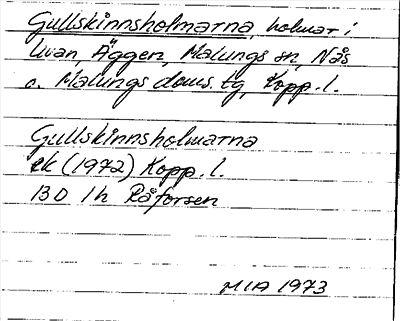 Gullskinnsholmarna, holmar i
Uvan, Äggen, Malungs sn, Nås
o. Malungs doms. tg, Kopp. l.
Gullskinnsholmarna
ek (1972) Kopp. l.
130 1h Råforsen
MIA 1973